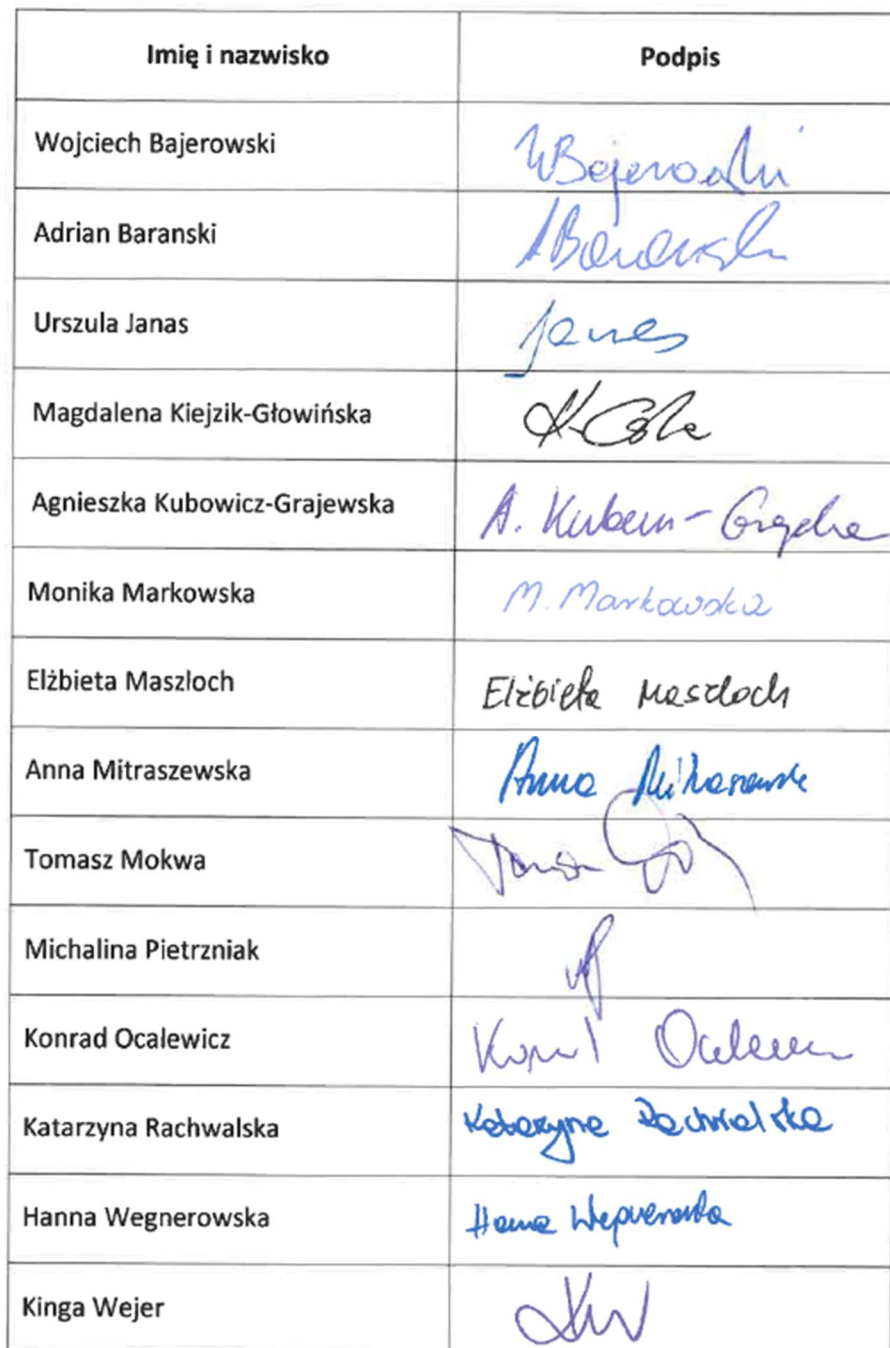 Imię i nazwisko Podpis
Wojciech Bajerowski WBajerowski
Adrian Baranski ABaranski
Urszula Janas Janas
Magdalena Kiejzik-Głowińska
Agnieszka Kubowicz-Grajewska A.
Monika Markowska M. Markowska
Elżbieta Maszloch Elżbieta Maszloch
Anna Mitraszewska Anna Mitraszewska
Tomasz Mokwa
Michalina Pietrzniak
Konrad Ocalewicz
Katarzyna Rachwalska Katarzyna Rachwalska
Hanna Wegnerowska Hanna Wegnerowska
Kinga Wejer KW